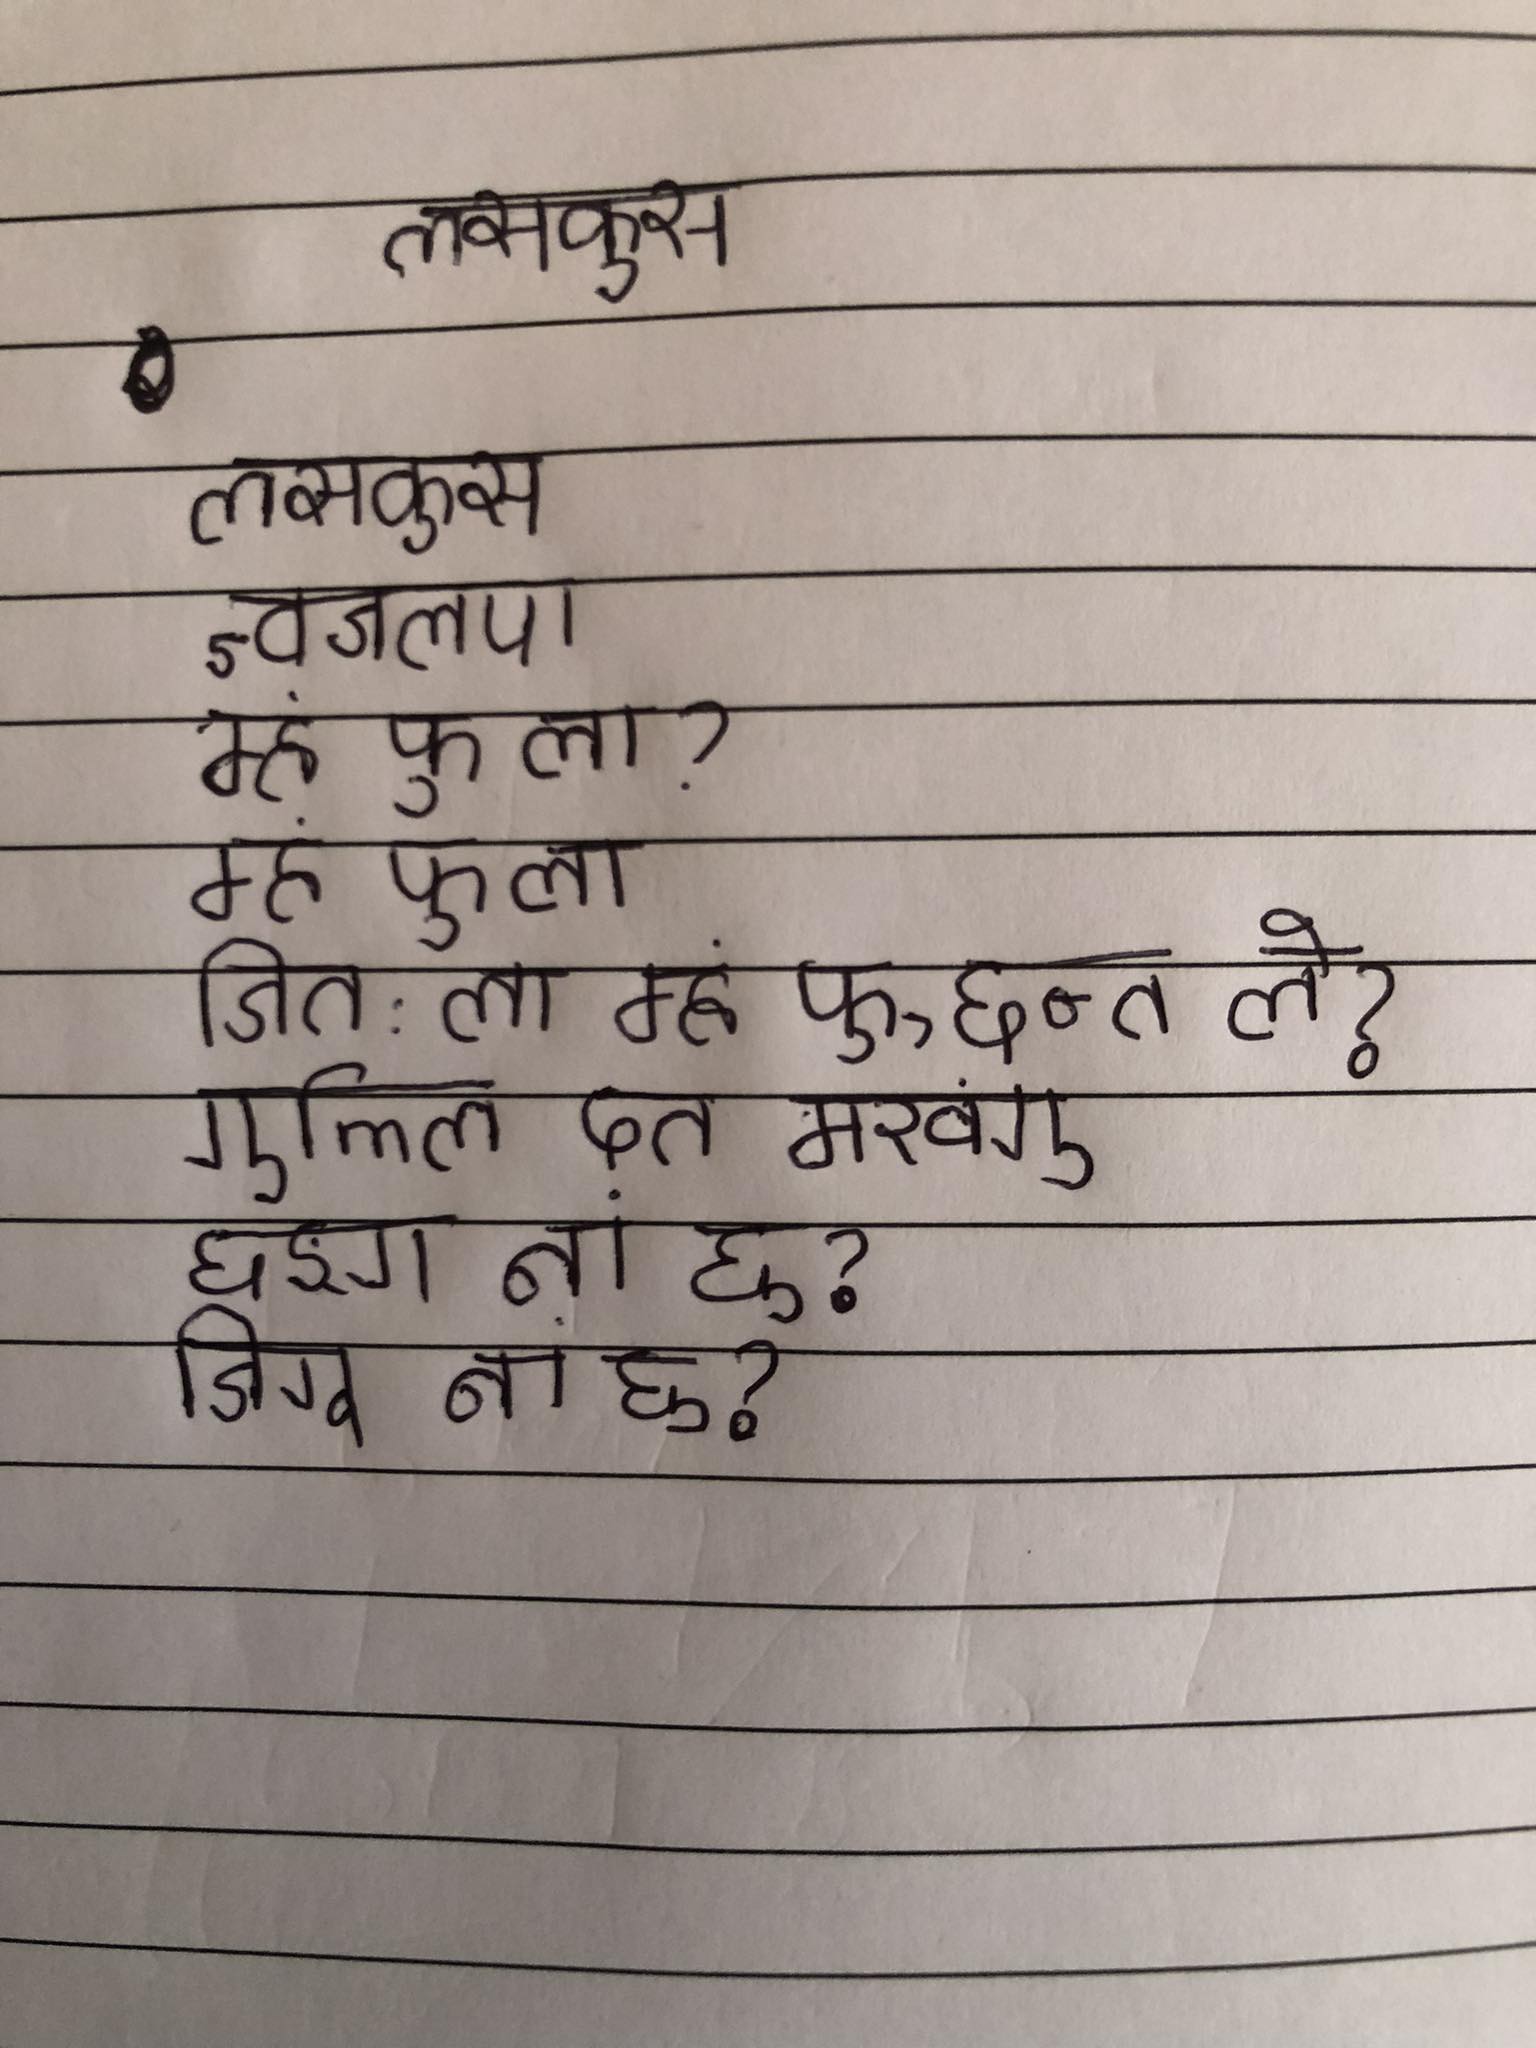 लसकुस
लसकुस
ज्वजलपा
म्हं फु ला?
म्हं फु ला
जित: ला म्हं फु, छन्त लै?
गुल्लि दत मखंगु
छङगा नां छु?
जिगू नां छु?